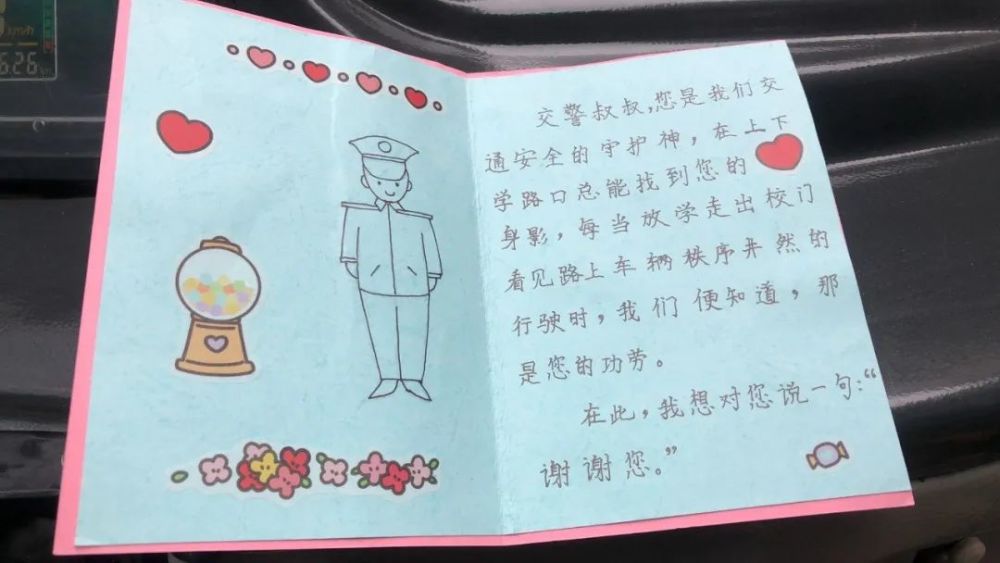 km/h
626
交警叔叔,您是我们交
通安全的守护神，在上下
学路口总能找到您的
身影，每当放学走出校门
看见路上车辆秩序井然的
行驶时，我们便知道，那
是您的功劳。
在此，我想对您说一句：“
谢谢您。”